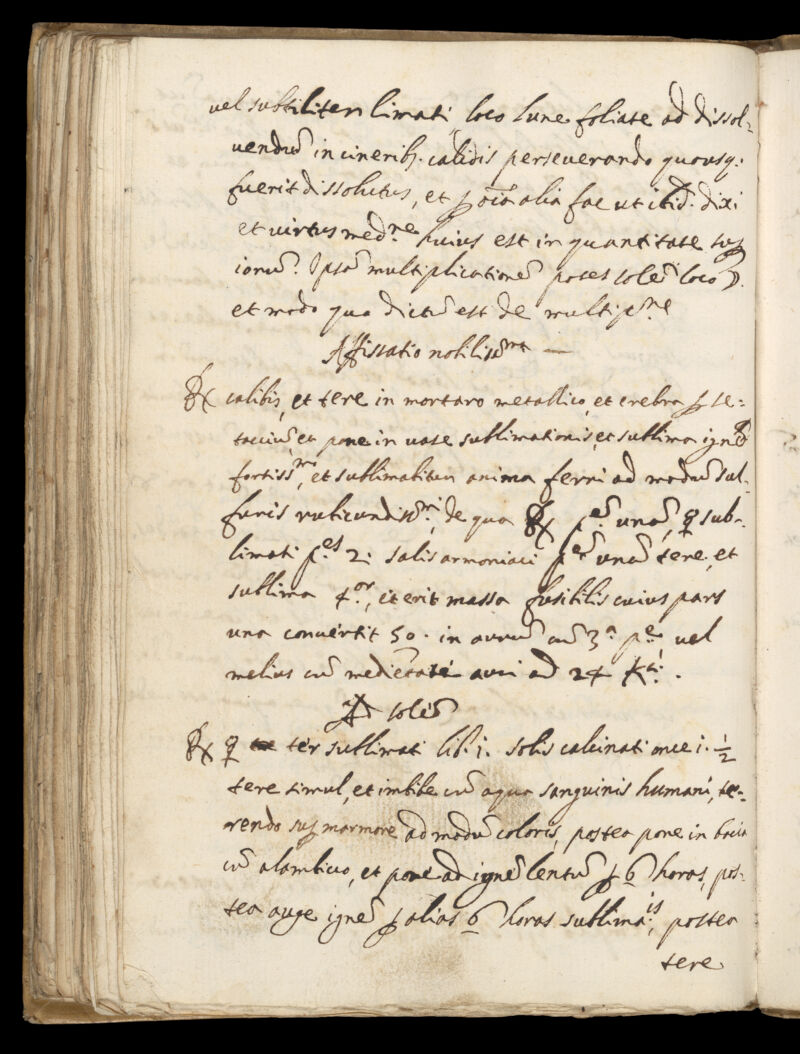 vel subtiliter limati loco lune foliate ad dissol=
vendũ in cinerib. calidis perseverando quousq.
fuerit dissolutus, et ꝑ oĩa alia fac ut ibid. dixi
et virtus med.ne huius est in quantitate
ionũ. Ipsã multiplicationẽ potes solẽ loco ☽.
et modo quo dictũ est de multip.ne
Affissatio nobiliss.ma —
℞ calibis, et tere in mortaro metallico, et crebra ꝑ se=
tacciũ, et pone in vase sublimationis, et sublima igne
fortiss.mo, et sublimabitur anima ferri ad modũ sul.
furis rubicundiss.mi, de quo ℞ p.em unã, ☿ sub-
limati p.es 2. salis armoniaci p.em unã tere, et
sublima 4.or, et erit massa fusibilis cuius pars
una convertit 50. in aurũ cũ 3.a p.e vel
melius cũ medietate auri ad 24 K.ti.
Ad solẽ
℞ ☿ ter sublimati lib. i. solis calcinati once i. ½
tere simul, et imbibe cũ aqua sanguinis humani, te=
rendo suꝑ marmore ad modũ coloris, postea pone in bocia
cũ alambico, et pone ad ignẽ lentũ ꝑ 6 horas, pos-
tea auge ignẽ ꝑ alias 6 horas sublima.is, postea
tere